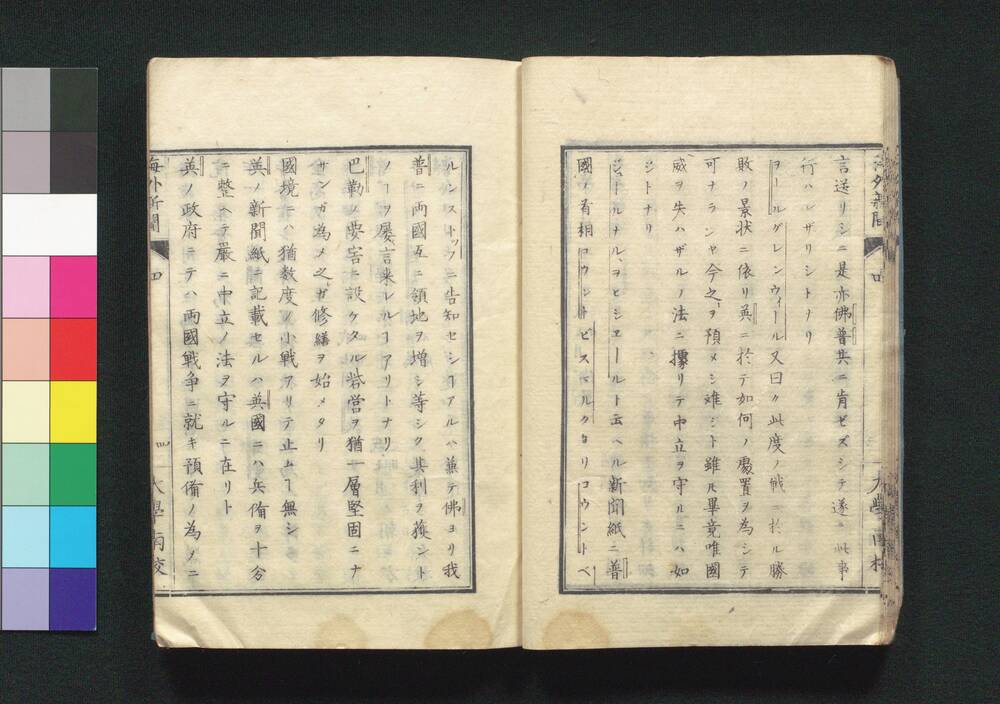 言送リシニ是亦佛普共ニ肯ゼズシテ遂ニ此事
行ハレザリシトナリ
ヲールグレンウィール又曰ク此度ノ戦ニ於ル勝
敗ノ景状ニ依リ英ニ於テ如何ノ處置ヲ為シテ
可ナランヤ今之ヲ預メシ難シト雖𪜈畢竟唯國
威ヲ失ハザルノ法ニ據リテ中立ヲ守ルニハ如
シトナリ
ジョールナル、ヲヒシエールト云ヘル新聞紙ニ普
國ノ首相コウントビスマルクヨリコウントベ
海外新聞
四
大學南校
ルンストッフニ告知セシヿアルハ兼テ佛ヨリ我
普ニ両國互ニ領地ヲ増シ等シク其利ヲ獲ント
ノヿヲ屢言来レルヿアリトナリ
巴勒ノ要害ニ設ケタル砦営ヲ猶一層堅固ニナ
サンガ為メ之ガ修繕ヲ始メタリ
國境ニハ猶数度ノ小戦アリテ止ムヿ無シ
英ノ新聞紙ニ記載セルハ英國ニハ兵備ヲ十分
ニ整ヘテ嚴ニ中立ノ法ヲ守ルニ在リト
英ノ政府ニテハ両國戦争ニ就キ預備ノ為メニ
海外新聞
四
大學南校